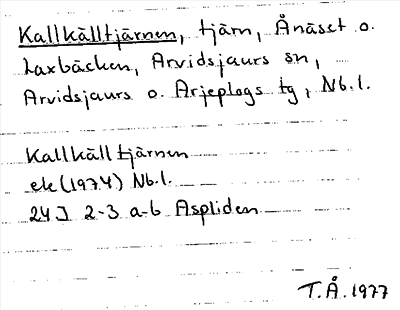 Kallkälltjärnen, tjärn, Ånäset o.
Laxbäcken, Arvidsjaurs sn,
Arvidsjaurs o. Arjeplogs tg, Nb.l.
Kallkälltjärnen
ek (1974) Nb.l.
24J 2-3 a-b Aspliden
T.Å. 1977